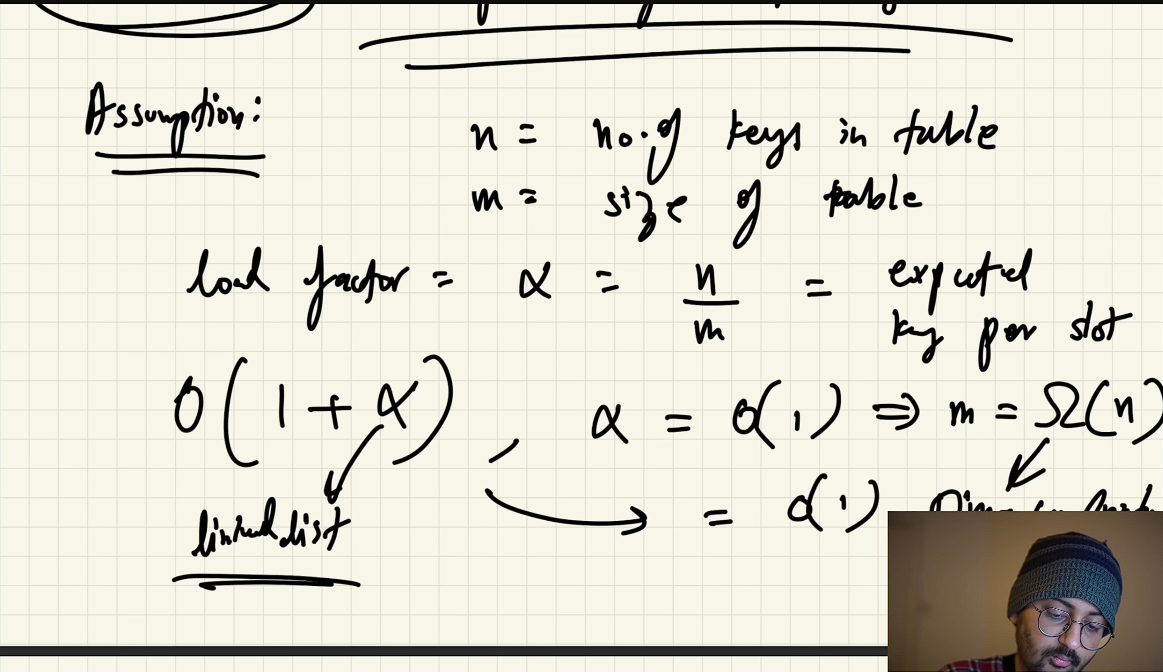 Assumption:
n = no. of keys in table
m = size of table
load factor = α = n/m = expected
key per slot
O(1 + α), α = O(1) ⇒ m = Ω(n)
linked list
= O(1)